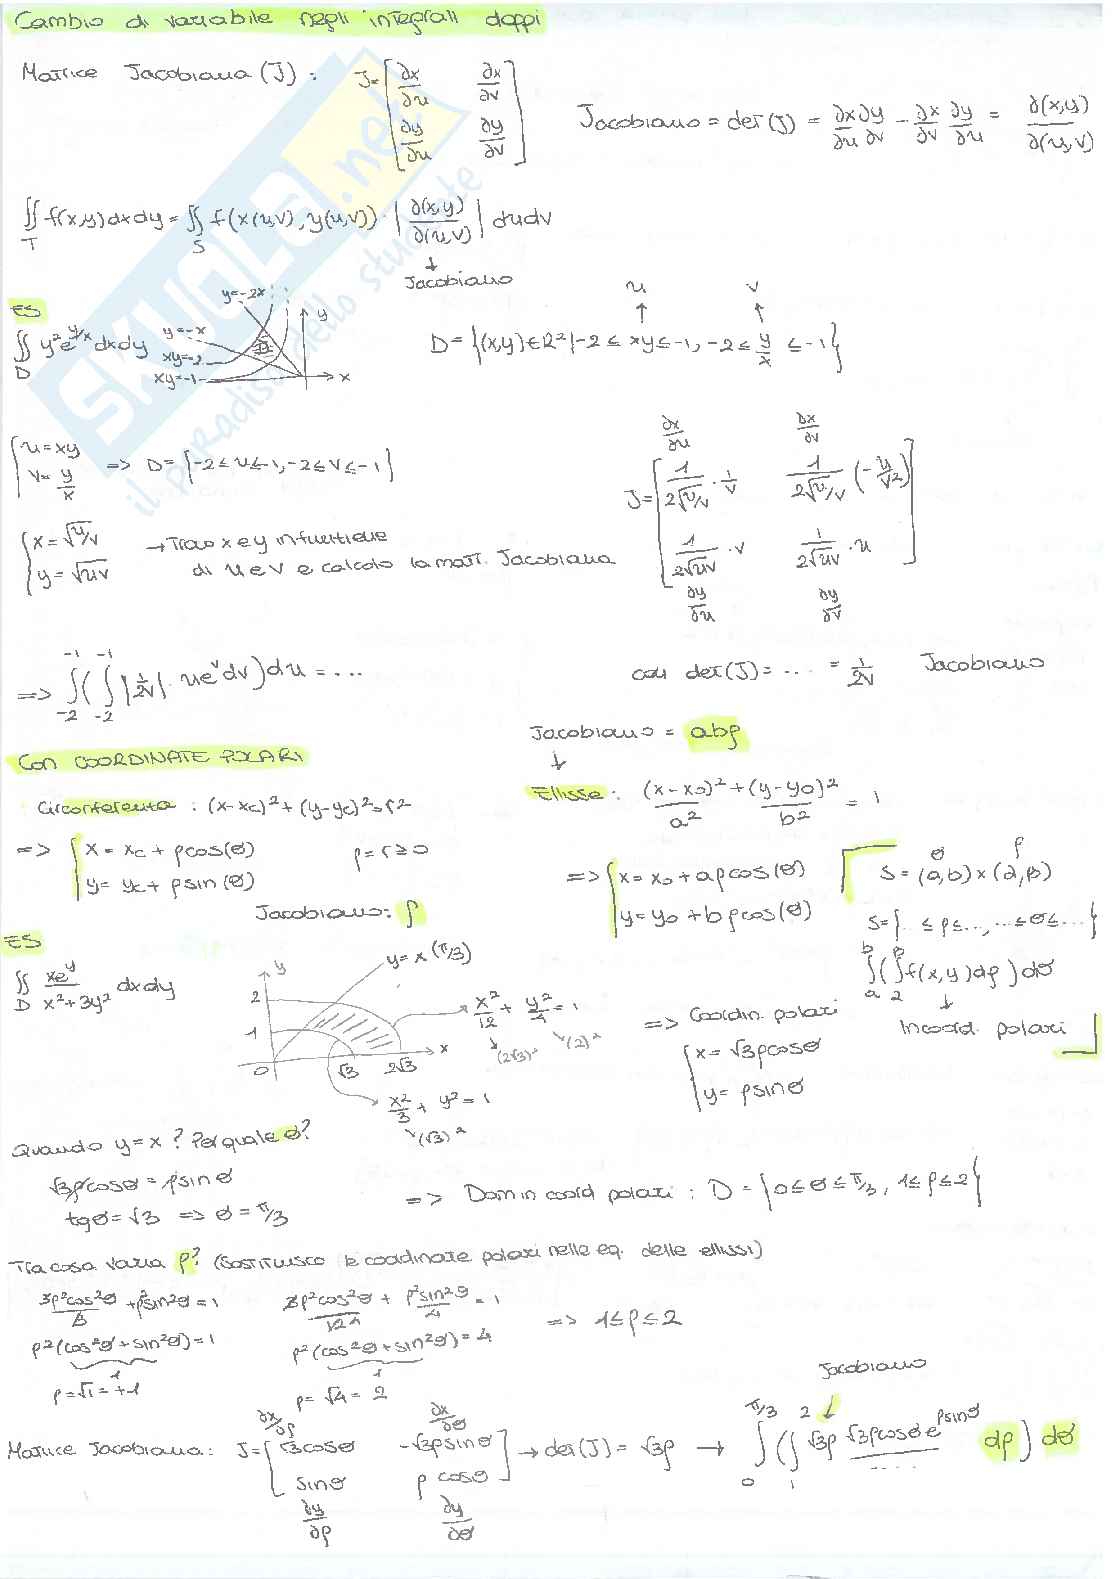 Cambio di variabile negli integrali doppi
Matrice Jacobiana (J) : J= [ ∂x/∂u ∂x/∂v ; ∂y/∂u ∂y/∂v ]
Jacobiano = det(J) = ∂x/∂u ∂y/∂v - ∂x/∂v ∂y/∂u = ∂(x,y)/∂(u,v)
∬_T f(x,y)dxdy = ∬_S f(x(u,v), y(u,v)) · | ∂(x,y)/∂(u,v) | dudv
↓
Jacobiano
ES
∬_D y²e^(y/x) dxdy
y=-2x
y=-x
xy=-2
xy=-1
D
y
x
u v
↑ ↑
D = {(x,y)∈R² | -2 ≤ xy ≤ -1, -2 ≤ y/x ≤ -1}
{ u = xy
v = y/x => D = {-2≤u≤-1, -2≤v≤-1}
{ x = √(u/v) → Trovo x e y in funzione
y = √(uv) di u e v e calcolo la matr. Jacobiana
∂x/∂u ∂x/∂v
J= [ 1/(2√(u/v)) · 1/v 1/(2√(u/v)) (-u/v²)
1/(2√(uv)) · v 1/(2√(uv)) · u ]
∂y/∂u ∂y/∂v
=> ∫_-2^-1 ( ∫_-2^-1 |1/2v| · ue^v dv) du = ...
con det(J) = .... = 1/2v Jacobiano
Con COORDINATE POLARI
Circonferenza : (x-xc)² + (y-yc)² = r²
=> { x = xc + ρcos(θ) ρ = r ≥ 0
y = yc + ρ sin(θ)
Jacobiano: ρ
Jacobiano = abρ
↓
Ellisse : (x-x0)²/a² + (y-y0)²/b² = 1
=> { x = x0 + aρcos(θ)
y = y0 + bρcos(θ)
θ ρ
S = (a,b) × (α,β)
S = {.. ≤ ρ ≤ ..., ... ≤ θ ≤ ...}
∫_a^b ( ∫_α^β f(x,y)dρ ) dθ
↓
In coord. polari
ES
∬_D xe^y/(x²+3y²) dxdy
y
2
1
0
√3
2√3
x
y = x (π/3)
x²/12 + y²/4 = 1
(2√3)² (2)²
x²/3 + y² = 1
(√3)²
=> Coordin. polari
{ x = √3ρcosθ
y = ρsinθ
Quando y = x ? Per quale θ?
√3ρcosθ = ρsinθ
tgθ = √3 => θ = π/3
=> Dom in coord polari : D = {0≤θ≤π/3, 1≤ρ≤2}
Tra cosa varia ρ? (Sostituisco le coordinate polari nelle eq. delle ellissi)
3ρ²cos²θ/3 + ρ²sin²θ = 1
3ρ²cos²θ/12 4 + ρ²sin²θ/4 = 1
=> 1≤ρ≤2
ρ²(cos²θ + sin²θ) = 1
ρ²(cos²θ + sin²θ) = 4
1
1
ρ = √1 = +1
ρ = √4 = 2
Jacobiano
∂x/∂ρ ∂x/∂θ
Matrice Jacobiana: J= [ √3cosθ -√3ρsinθ
sinθ ρ cosθ ] → det(J) = √3ρ → ∫_0^π/3 ( ∫_1^2 √3ρ √3ρcosθ e^(ρsinθ)/.... dρ) dθ
∂y/∂ρ ∂y/∂θ
SKUOLA.net
il paradiso dello studente